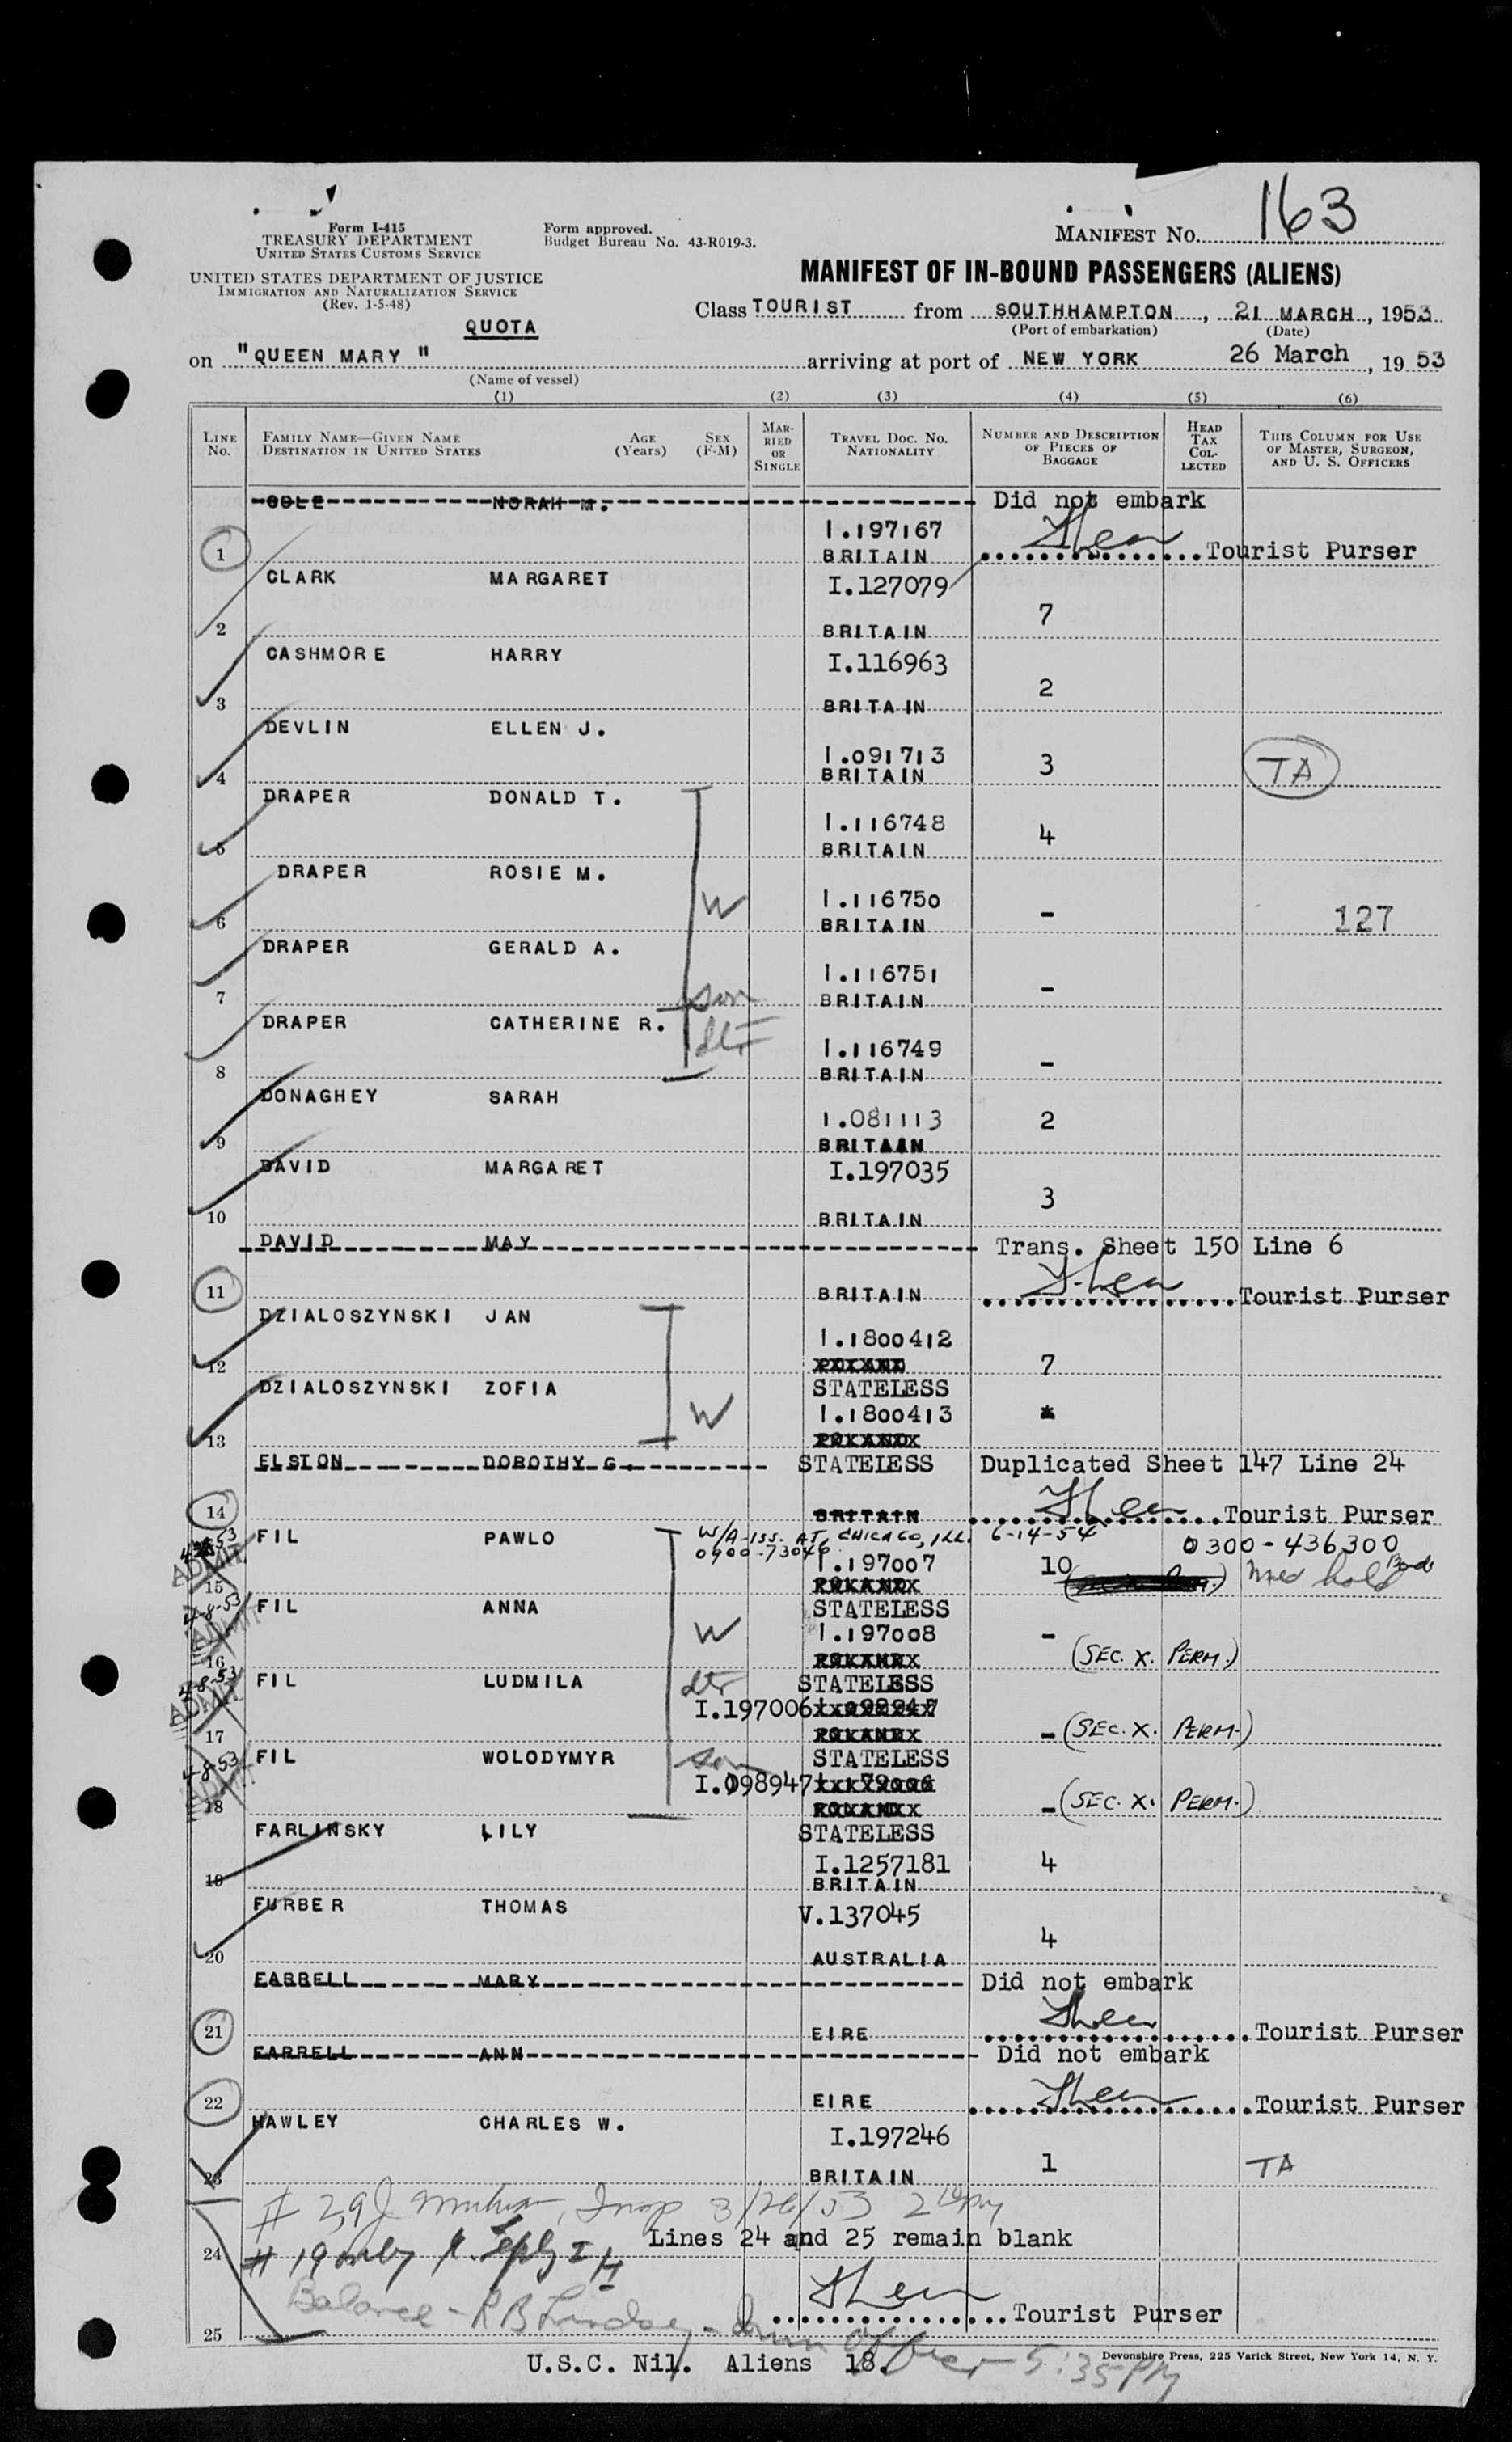 163
Form I-415
TREASURY DEPARTMENT
UNITED STATES CUSTOMS SERVICE
Form approved.
Budget Bureau No. 43-R019-3.
MANIFEST NO.
UNITED STATES DEPARTMENT OF JUSTICE
IMMIGRATION AND NATURALIZATION SERVICE
(Rev. 1-5-48)
MANIFEST OF IN-BOUND PASSENGERS (ALIENS)
Class TOURIST from SOUTHHAMPTON, 21 MARCH, 1953
(Port of embarkation) (Date)
QUOTA
on "QUEEN MARY" arriving at port of NEW YORK 26 March, 1953
(Name of vessel)
(1) (2) (3) (4) (5) (6)
LINE No. FAMILY NAME—GIVEN NAME DESTINATION IN UNITED STATES AGE (Years) SEX (F-M) MARRIED OR SINGLE TRAVEL DOC. NO. NATIONALITY NUMBER AND DESCRIPTION OF PIECES OF BAGGAGE HEAD TAX COLLECTED THIS COLUMN FOR USE OF MASTER, SURGEON, AND U. S. OFFICERS
COLE NORAH M. Did not embark
I.197167
1 BRITAIN Tourist Purser
CLARK MARGARET I.127079
7
2 BRITAIN
CASHMORE HARRY I.116963
2
3 BRITAIN
DEVLIN ELLEN J.
I.091713 3 TA
4 BRITAIN
DRAPER DONALD T.
I.116748 4
5 BRITAIN
DRAPER ROSIE M.
W I.116750 -
6 BRITAIN 127
DRAPER GERALD A.
I.116751 -
7 son BRITAIN
DRAPER CATHERINE R. dtr
I.116749 -
8 BRITAIN
DONAGHEY SARAH
I.081113 2
9 BRITAIN
DAVID MARGARET I.197035
3
10 BRITAIN
DAVID MAY Trans. Sheet 150 Line 6
11 BRITAIN Tourist Purser
DZIALOSZYNSKI JAN
I.1800412
12 7
DZIALOSZYNSKI ZOFIA STATELESS
W I.1800413
13
ELSTON DOROTHY G. STATELESS Duplicated Sheet 147 Line 24
14 BRITAIN Tourist Purser
FIL PAWLO W/A-ISS. AT, CHICAGO, ILL. 6-14-54 0300-436300
0900-73046
ADMIT I.197007 10
15
4-8-53 FIL ANNA STATELESS
ADMIT W I.197008 - (SEC. X. PERM.)
16
4-8-53 FIL LUDMILA dtr STATELESS
ADMIT I.197006
17 - (SEC. X. PERM.)
4-8-53 FIL WOLODYMYR son STATELESS
ADMIT I.098947
18 - (SEC. X. PERM.)
FARLINSKY LILY STATELESS
I.1257181 4
19 BRITAIN
FURBER THOMAS V.137045
4
20 AUSTRALIA
FARRELL MARY Did not embark
21 EIRE Tourist Purser
FARRELL ANN Did not embark
22 EIRE Tourist Purser
HAWLEY CHARLES W.
I.197246
1 TA
23 BRITAIN
3/26/53
Lines 24 and 25 remain blank
24 # 19 only
Balance - R B Lindsey
Tourist Purser
25
5:35 PM
U.S.C. Nil. Aliens 18.
Devonshire Press, 225 Varick Street, New York 14, N. Y.